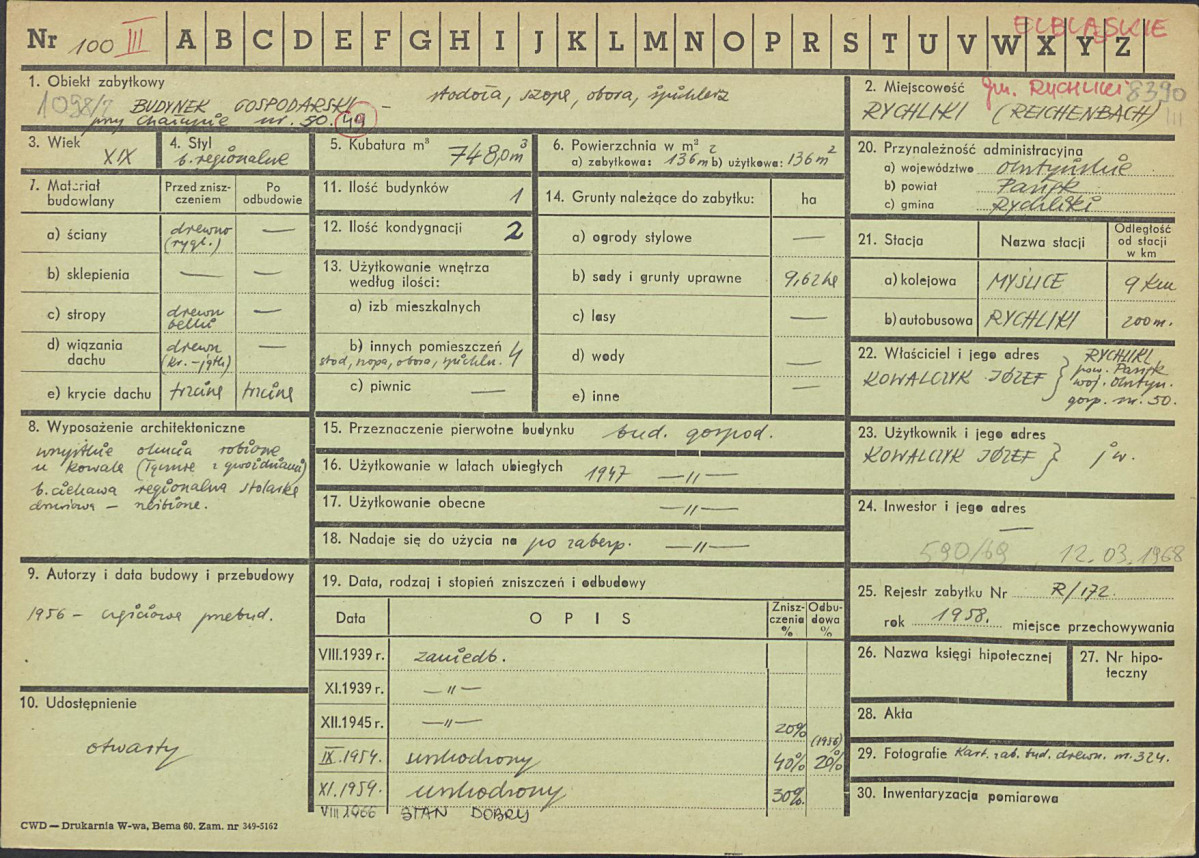 ELBLĄSKIE
Nr 100 III A B C D E F G H I J K L M N O P R S T U V W X Y Z
1. Obiekt zabytkowy
1098/7 BUDYNEK GOSPODARSKI – stodoła, szopa, obora, spichlerz
przy chałupie nr. 50. 49
2. Miejscowość gm. RYCHLIKI 8390
RYCHLIKI (REICHENBACH) III
3. Wiek
XIX
4. Styl
b. regionalne
5. Kubatura m³
748,0 m³
6. Powierzchnia w m²
a) zabytkowa: 136 m² b) użytkowa: 136 m²
7. Materiał budowlany
Przed zniszczeniem
Po odbudowie
a) ściany drewno (rygl.) —
b) sklepienia — —
c) stropy drewn belki —
d) wiązania dachu drewn (kr.-jętk) —
e) krycie dachu trzcina trzcina
8. Wyposażenie architektoniczne
wszystkie okucia robione
u kowala
b. ciekawa regionalna stolarka
drzwiowa –
9. Autorzy i data budowy i przebudowy
1956 – częściowa przebud.
10. Udostępnienie
otwarty
11. Ilość budynków 1
12. Ilość kondygnacji 2
13. Użytkowanie wnętrza według ilości:
a) izb mieszkalnych
b) innych pomieszczeń 4
stod, szopa, obora, spichlrz.
c) piwnic —
14. Grunty należące do zabytku: ha
a) ogrody stylowe —
b) sady i grunty uprawne 9,62 ha
c) lasy —
d) wody —
e) inne —
15. Przeznaczenie pierwotne budynku bud. gospod.
16. Użytkowanie w latach ubiegłych 1947 —„—
17. Użytkowanie obecne —„—
18. Nadaje się do użycia na po zabezp. —„—
19. Data, rodzaj i stopień zniszczeń i odbudowy
Data OPIS Zniszczenia % Odbudowa %
VIII.1939 r. zaniedb.
XI.1939 r. —„—
XII.1945 r. —„— 20%
IX.1954. uszkodzony 40% (1956) 20%
XI.1959. uszkodzony 30%.
VIII 1966 STAN DOBRY
20. Przynależność administracyjna
a) województwo olsztyńskie
b) powiat Pasłęk
c) gmina Rychliki
21. Stacja Nazwa stacji Odległość od stacji w km
a) kolejowa MYŚLICE 9 km
b) autobusowa RYCHLIKI 200 m.
22. Właściciel i jego adres
KOWALCZYK JÓZEF } RYCHLIKI
pow. Pasłęk
woj. olsztyn.
gosp. nr. 50.
23. Użytkownik i jego adres
KOWALCZYK JÓZEF } j w.
24. Inwestor i jego adres
—
590/69 12.03.1968
25. Rejestr zabytku Nr R/172.
rok 1958. miejsce przechowywania
26. Nazwa księgi hipotecznej
27. Nr hipoteczny
28. Akta
29. Fotografie Kart. zab. bud. drewn. nr. 324.
30. Inwentaryzacja pomiarowa
CWD — Drukarnia W-wa, Bema 60. Zam. nr 349-5162